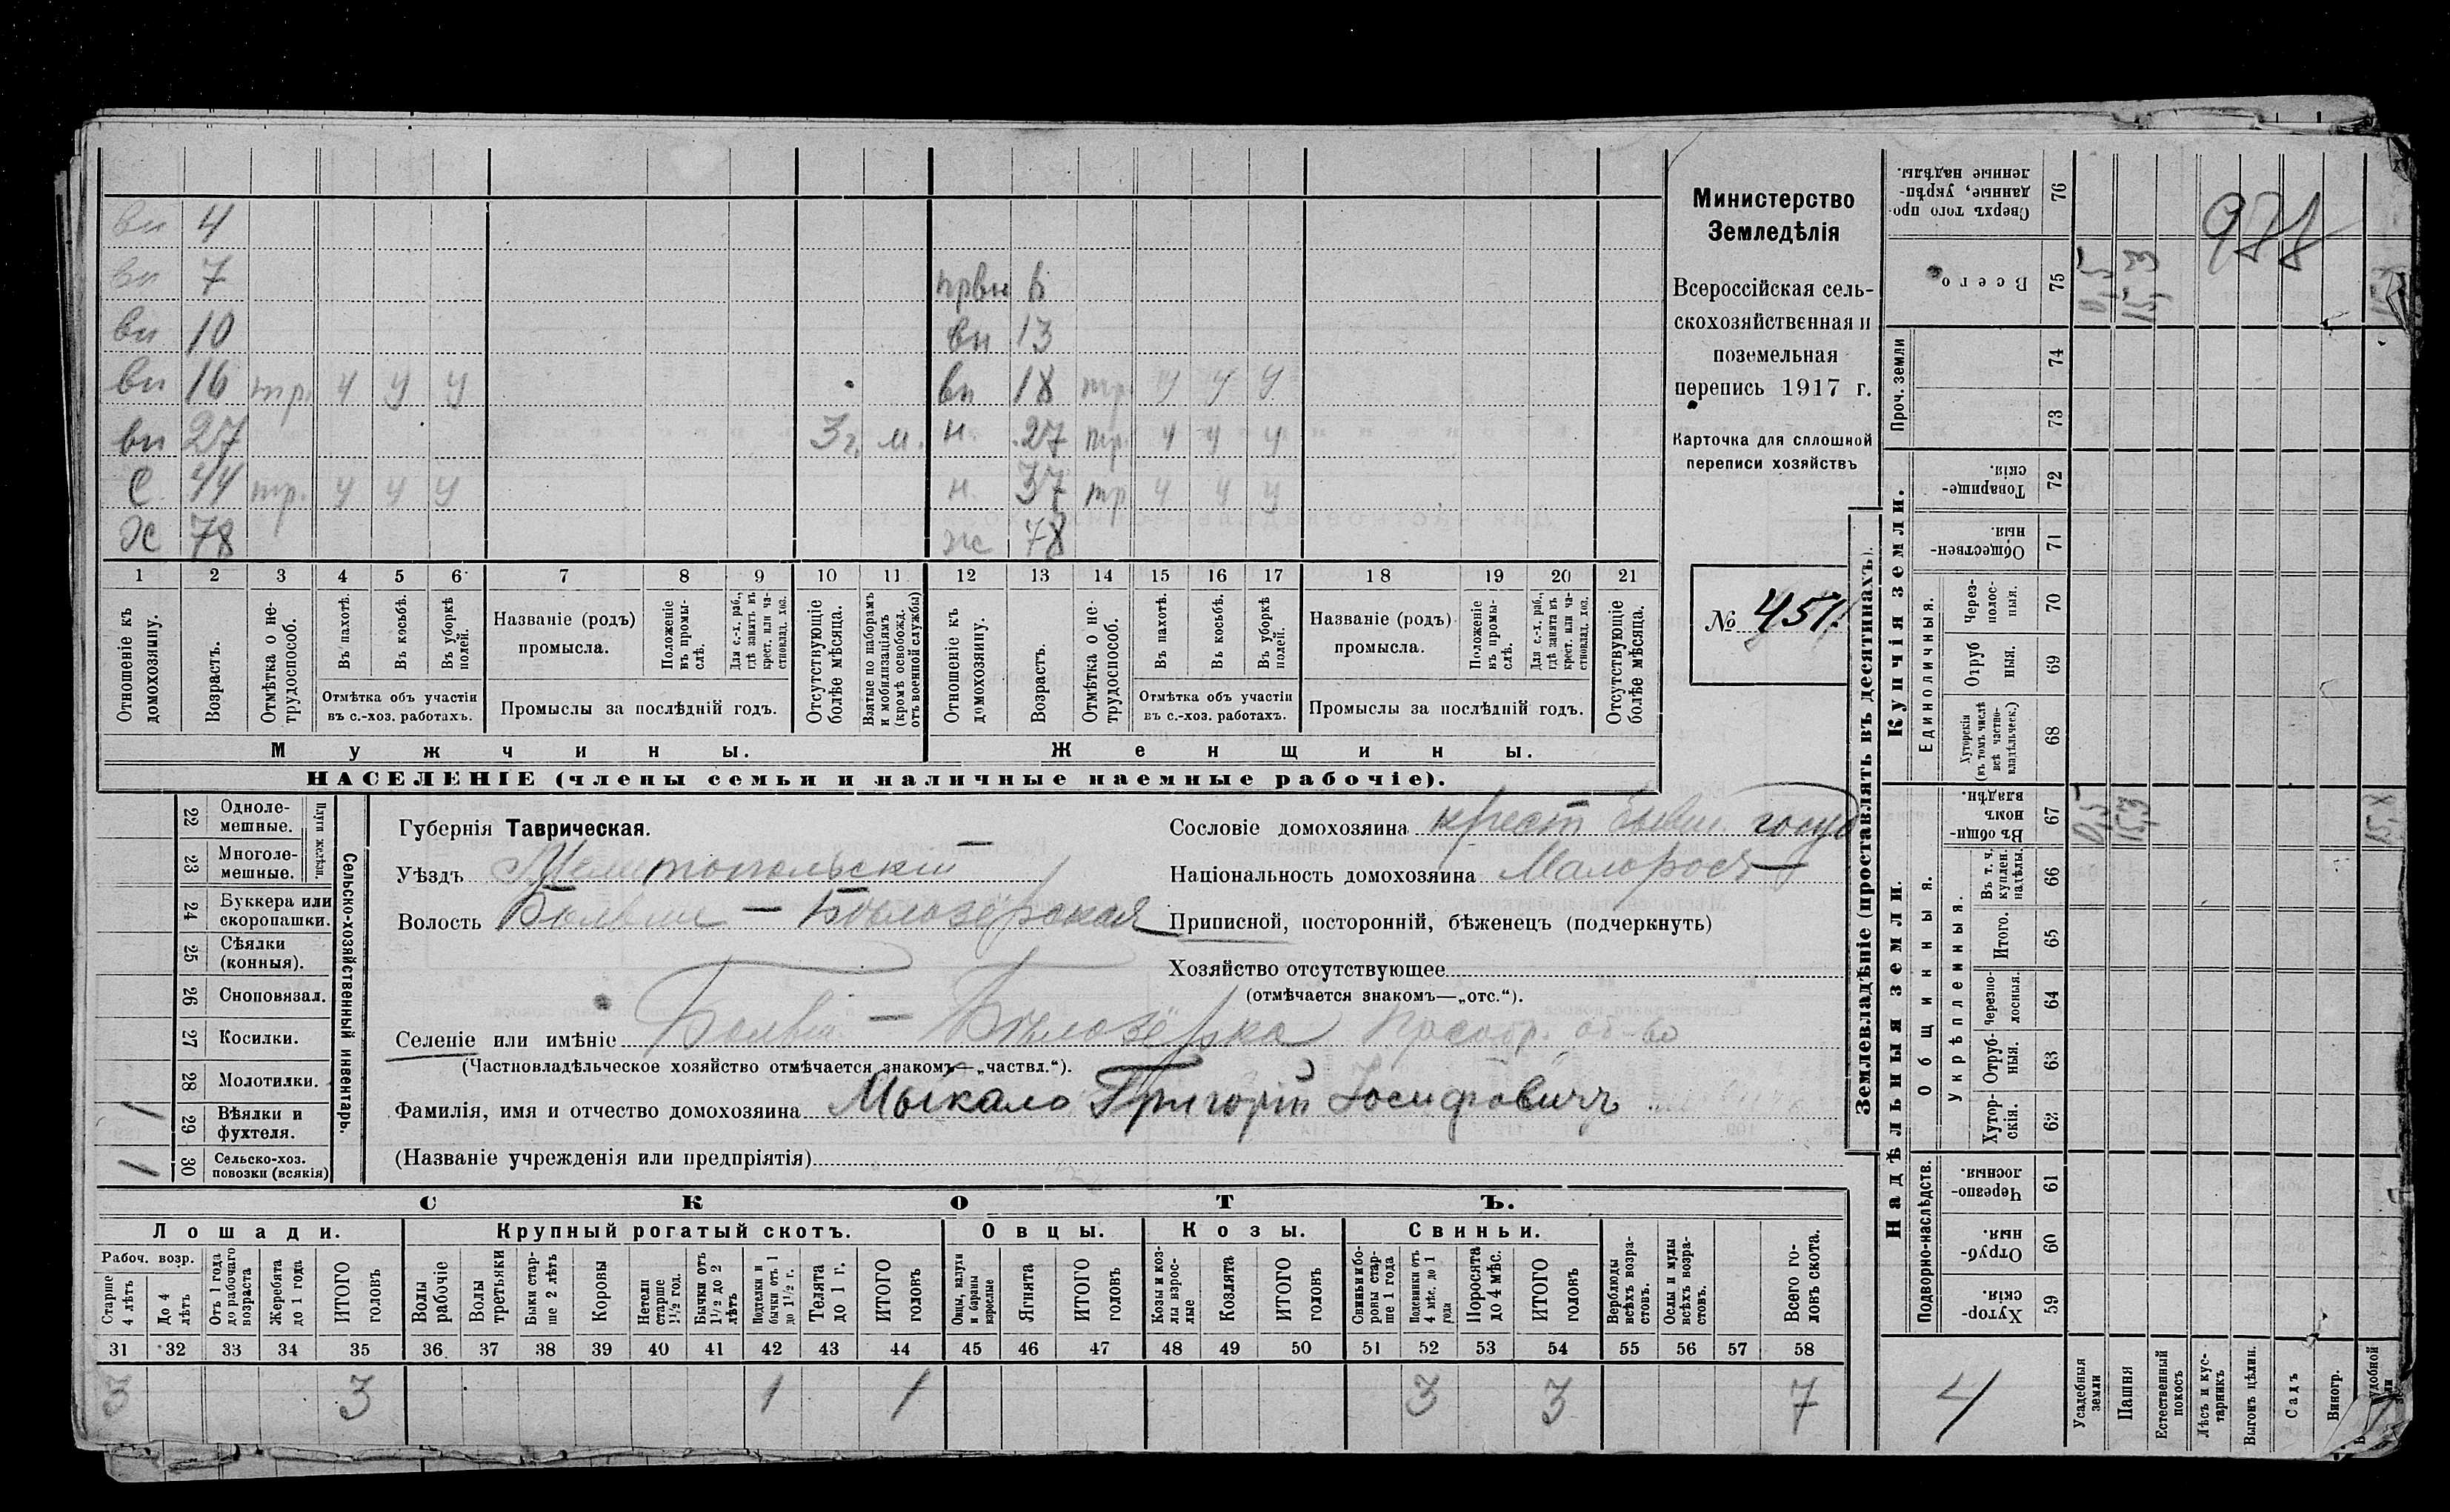 вн 4
вн 7 првн
вн 10 вн 13
вн 16 тр. ч у у вн 18 тр. ч у у
вн 27 3 г. м. н. 27 тр. ч у у
С 44 тр. ч ч у н. 37 тр ч ч у
Ж 78 ж 78
1 2 3 4 5 6 7 8 9 10 11 12 13 14 15 16 17 18 19 20 21
Отношеніе къ домохозяину.
Возрастъ.
Отмѣтка о нетрудоспособ.
Въ пахотѣ.
Въ косьбѣ.
Въ уборкѣ полей.
Отмѣтка объ участіи въ с.-хоз. работахъ.
Названіе (родъ) промысла.
Положеніе въ промыслѣ.
Для с.-х. раб., гдѣ занятъ въ крест. или частновлад. хоз.
Промыслы за послѣдній годъ.
Отсутствующіе болѣе мѣсяца.
Взятые по наборамъ и мобилизаціямъ (кромѣ освобожд. отъ военной службы)
Отношеніе къ домохозяину.
Возрастъ.
Отмѣтка о нетрудоспособ.
Въ пахотѣ.
Въ косьбѣ.
Въ уборкѣ полей.
Отмѣтка объ участіи въ с.-хоз. работахъ.
Названіе (родъ) промысла.
Положеніе въ промыслѣ.
Для с.-х. раб., гдѣ занята въ крест. или частновлад. хоз.
Промыслы за послѣдній годъ.
Отсутствующіе болѣе мѣсяца.
Мужчины.
Женщины.
НАСЕЛЕНІЕ (члены семьи и наличные наемные рабочіе).
Министерство
Земледѣлія
Всероссійская сель-
скохозяйственная и
поземельная
перепись 1917 г.
Карточка для сплошной
переписи хозяйствъ
№ 451.
22 Однолемешные.
23 Многолемешные.
Плуги желѣзн.
24 Буккера или скоропашки.
25 Сѣялки (конныя).
26 Сноповязал.
27 Косилки.
28 Молотилки.
29 Вѣялки и фухтеля. 1
30 Сельско-хоз. повозки (всякія) 1
Сельско-хозяйственный инвентарь.
Губернія Таврическая.
Уѣздъ Мелитопольскій
Волость Больше-Бѣлозёрская
Селеніе или имѣніе Больш.-Бѣлозёрка
(Частновладѣльческое хозяйство отмѣчается знакомъ—„частвл.“).
Фамилія, имя и отчество домохозяина Мыкало Григорій Іосифовичъ
(Названіе учрежденія или предпріятія)
Сословіе домохозяина крест бывш. госуд
Національность домохозяина Малоросъ
Приписной, посторонній, бѣженецъ (подчеркнуть)
Хозяйство отсутствующее
(отмѣчается знакомъ—„отс.“).
СКОТЪ.
Лошади.
Крупный рогатый скотъ.
Овцы.
Козы.
Свиньи.
Рабоч. возр.
Старше 4 лѣтъ
До 4 лѣтъ
Отъ 1 года до рабочаго возраста
Жеребята до 1 года
ИТОГО головъ
Волы рабочіе
Волы третьяки
Быки старше 2 лѣтъ
Коровы
Нетели старше 1½ год.
Бычки отъ 1½ до 2 лѣтъ
Подтелки и бычки отъ 1 до 1½ г.
Телята до 1 г.
ИТОГО головъ
Овцы, валухи и бараны взрослые
Ягнята
ИТОГО головъ
Козы и козлы взрослые
Козлята
ИТОГО головъ
Свиньи и боровы старше 1 года
Подсвинки отъ 4 мѣс. до 1 года
Поросята до 4 мѣс.
ИТОГО головъ
Верблюды всѣхъ возрастовъ.
Ослы и мулы всѣхъ возрастовъ.
Всего головъ скота.
31 32 33 34 35 36 37 38 39 40 41 42 43 44 45 46 47 48 49 50 51 52 53 54 55 56 57 58
3 3 1 1 3 3 7
Землевладѣніе (проставлять въ десятинахъ).
Купчія земли.
Надѣльныя земли.
Сверхъ того проданные, укрѣпленные надѣлы. 76
Всего 75 0,5 15,3
Проч. земли
74
73
Товарищескія. 72
Общественныя. 71
Единоличныя.
Черезполосныя. 70
Отрубныя. 69
Хуторскія (въ томъ числѣ всѣ частновладѣльческ.) 68
Общинныя.
Въ общинномъ владѣн. 67 0,5 15,3 15,8
Укрѣпленныя.
Въ т. ч. куплен. надѣлы. 66
Итого. 65
Черезполосныя. 64
Отрубныя. 63
Хуторскія. 62
Подворно-наслѣдств.
Черезполосныя. 61
Отрубныя. 60
Хуторскія. 59
988
4
Усадебныя земли
Пашня
Естественный покосъ
Лѣсъ и кустарникъ
Выгонъ цѣлин.
Садъ
Виногр.